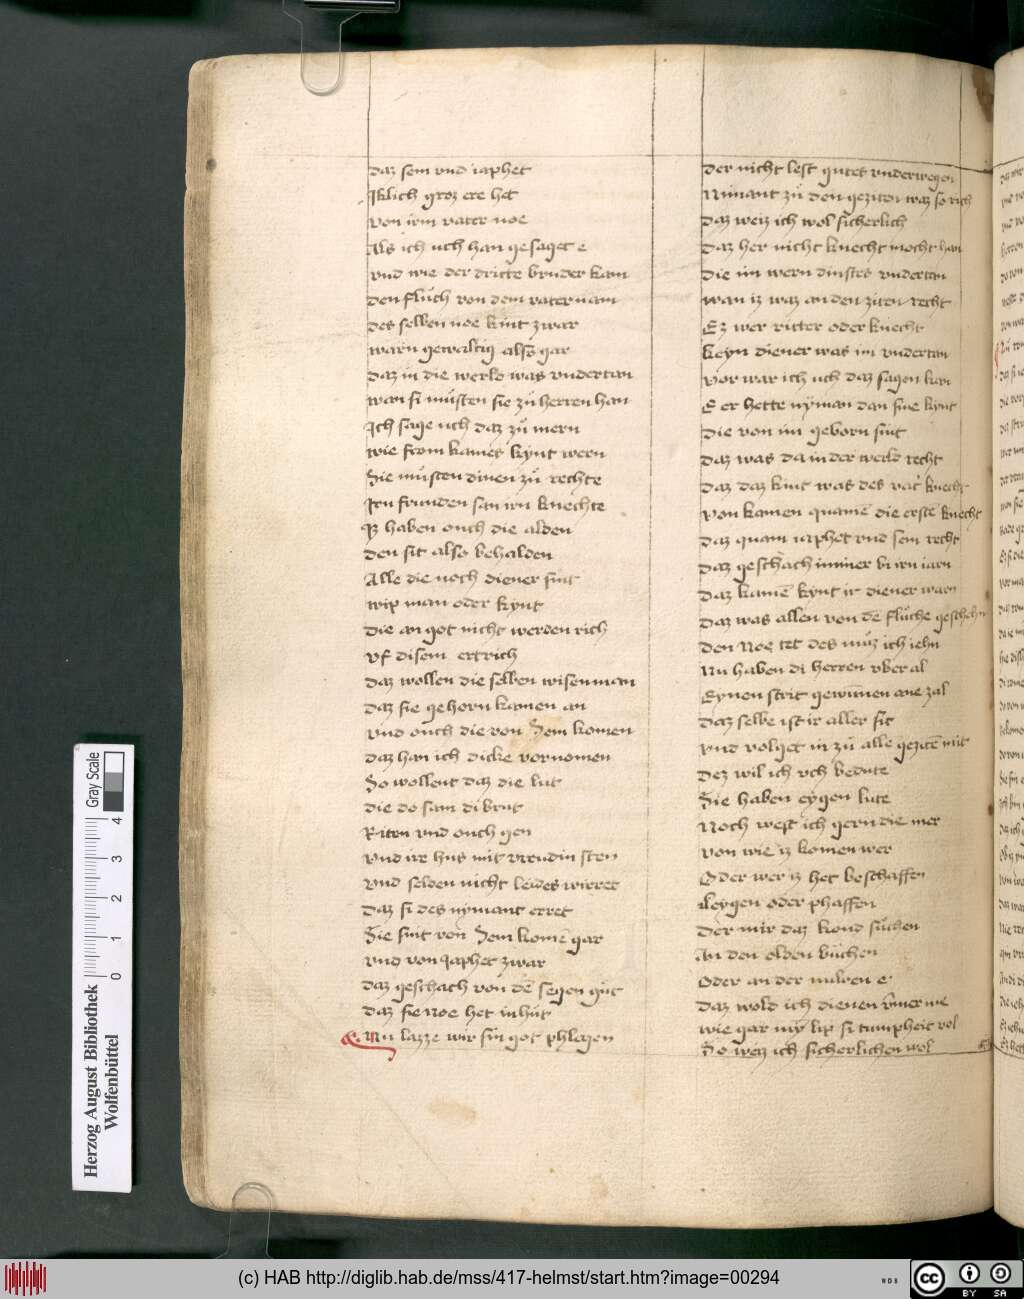 daz sem vnd iaphet
Iklich groz ere het
von irm vater noe
Als ich uch han gesaget e
vnd wie der dritte bruder kam
den fluͦch von dem vater nam
des selben noe kint zwar
warn gewaltig also gar
daz in die werld was vndertan
wan si muͦsten sie zuͦ herren han
Ich sage uch daz zuͦ mern
wie from kames kynt wern
Sie muͦsten dinen zuͦ rechte
Irn frunden san irn knechte
Iz haben ouch die alden
den sit also behalden
Alle die noch diener sint
wip man oder kynt
die an got nicht werden rich
vf disem ertrich
daz wollen die selben wisen man
daz sie gehorn kamen an
vnd ouch die von Sem komen
daz han ich dicke vornomen
So wollent daz die lut
die do sam di brut
Riten vnd ouch gen
vnd ire hus mit vreudin sten
vnd selden nicht leides wirret
daz si des nymant erret
Sie sint von Sem komē gar
vnd von Japhet zwar
daz geschach von dē segen guͦt
daz sie Noe het in huͦt
Nu lazze wir sin got phlegen
der nicht lest gutes vnderwegen
Nimant zuͦ den geziten waz so rich
daz weiz ich wol sicherlich
daz her nicht knecht mocht han
die im wern dinstes vndertan
wan iz waz an den ziten recht
Ez wer ritter oder knecht
keyn diener was im vndertan
vor war ich uch daz sagen kan
E er hette nyman dan sine kynt
die von im geborn sint
daz was da in der werld recht
daz daz kint was des vat' knecht
von kamen quamē die erstē knecht
daz quam iaphet vnd sem recht
daz geschach immer bi irn iarn
daz kamē kynt ir diener warn
daz was allen von dē fluͦche geschehn
den Noe tet des muͦz ich iehn
Nu haben di herren vber al
Eynen strit gewūnen ane zal
daz selbe ist ir aller sit
vnd volget in zuͦ allē gezitē mit
dez wil ich vch bedute
Sie haben eygen lute
Noch west ich gern die mer
von wie iz komen wer
Oder wer iz het beschaffen
Leygen oder phaffen
der mir daz kond suͦchen
An den olden buͦchen
Oder an der nuwen e
daz wold ich dienen ym̄er me
wie gar my lip si tumpheit vol
So weiz ich sicherlichen wol
Herzog August Bibliothek
Wolfenbüttel
Gray Scale
0 1 2 3 4
(c) HAB http://diglib.hab.de/mss/417-helmst/start.htm?image=00294
WDB
cc
BY SA